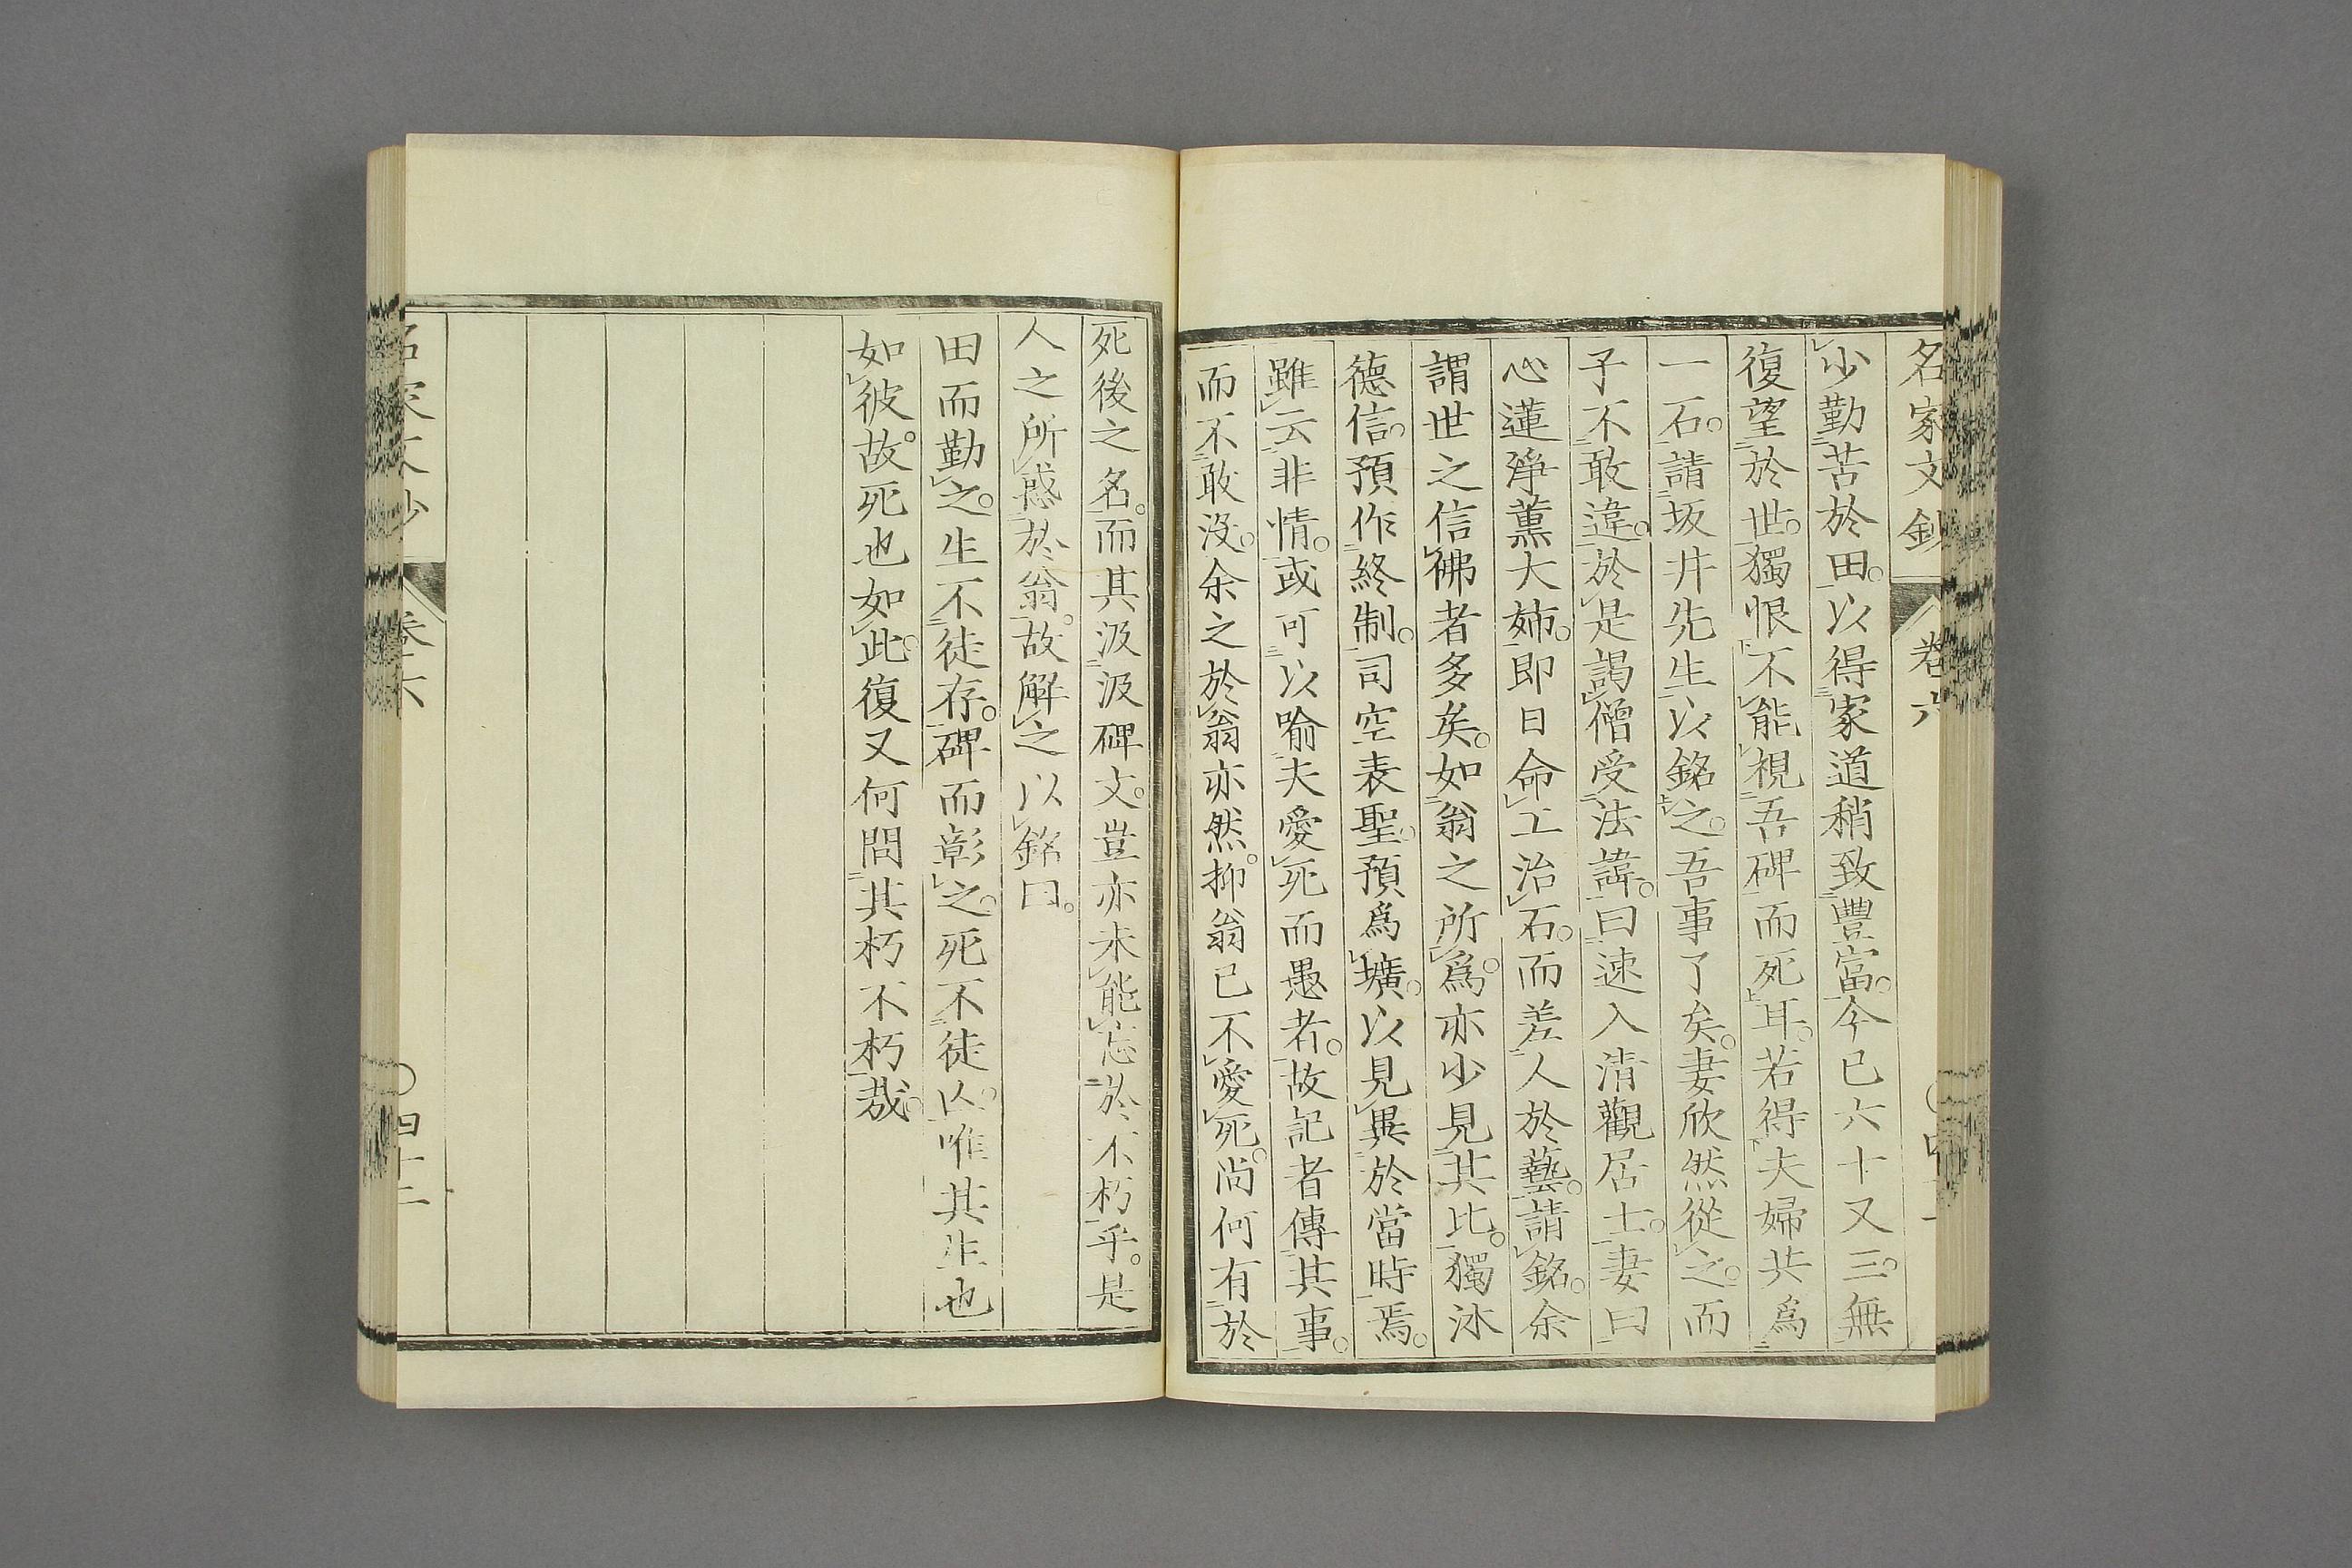 名家文鈔 卷六
少勤苦於田。以得家道稍致豐富。今已六十又三。無
復望於世。獨恨不能視吾碑而死耳。若得夫婦共爲
一石。請坂井先生以銘之。吾事了矣。妻欣然從之。而
子不敢違。於是謁僧受法諱。曰速入清觀居士。妻曰
心蓮淨薰大姉。即日命工治石。而差人於藝。請銘。余
謂世之信佛者多矣。如翁之所爲。亦少見其比。獨沐
德信。預作終制。司空表聖。預爲壙。以見異於當時焉。
雖云非情。或可以喻夫愛死而愚者。故記者傳其事。
而不敢沒。余之於翁亦然。抑翁已不愛死。尚何有於
死後之名。而其汲汲碑文。豈亦未能忘於不朽乎。是
人之所惑於翁。故解之以銘曰。
田而勤之。生不徒存。碑而彰之。死不徒以。唯其生也
如彼。故死也如此。復又何問其朽不朽哉。
名家文鈔 卷六 〇四十二